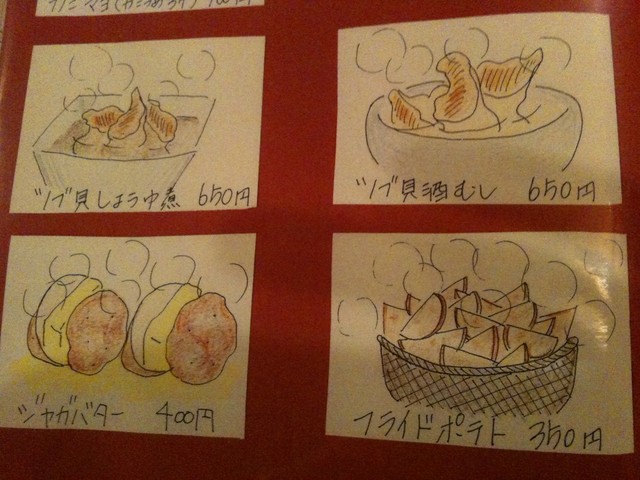 ツブ貝しょうゆ煮 650円
ツブ貝酒むし 650円
ジャガバター 400円
フライドポテト 350円